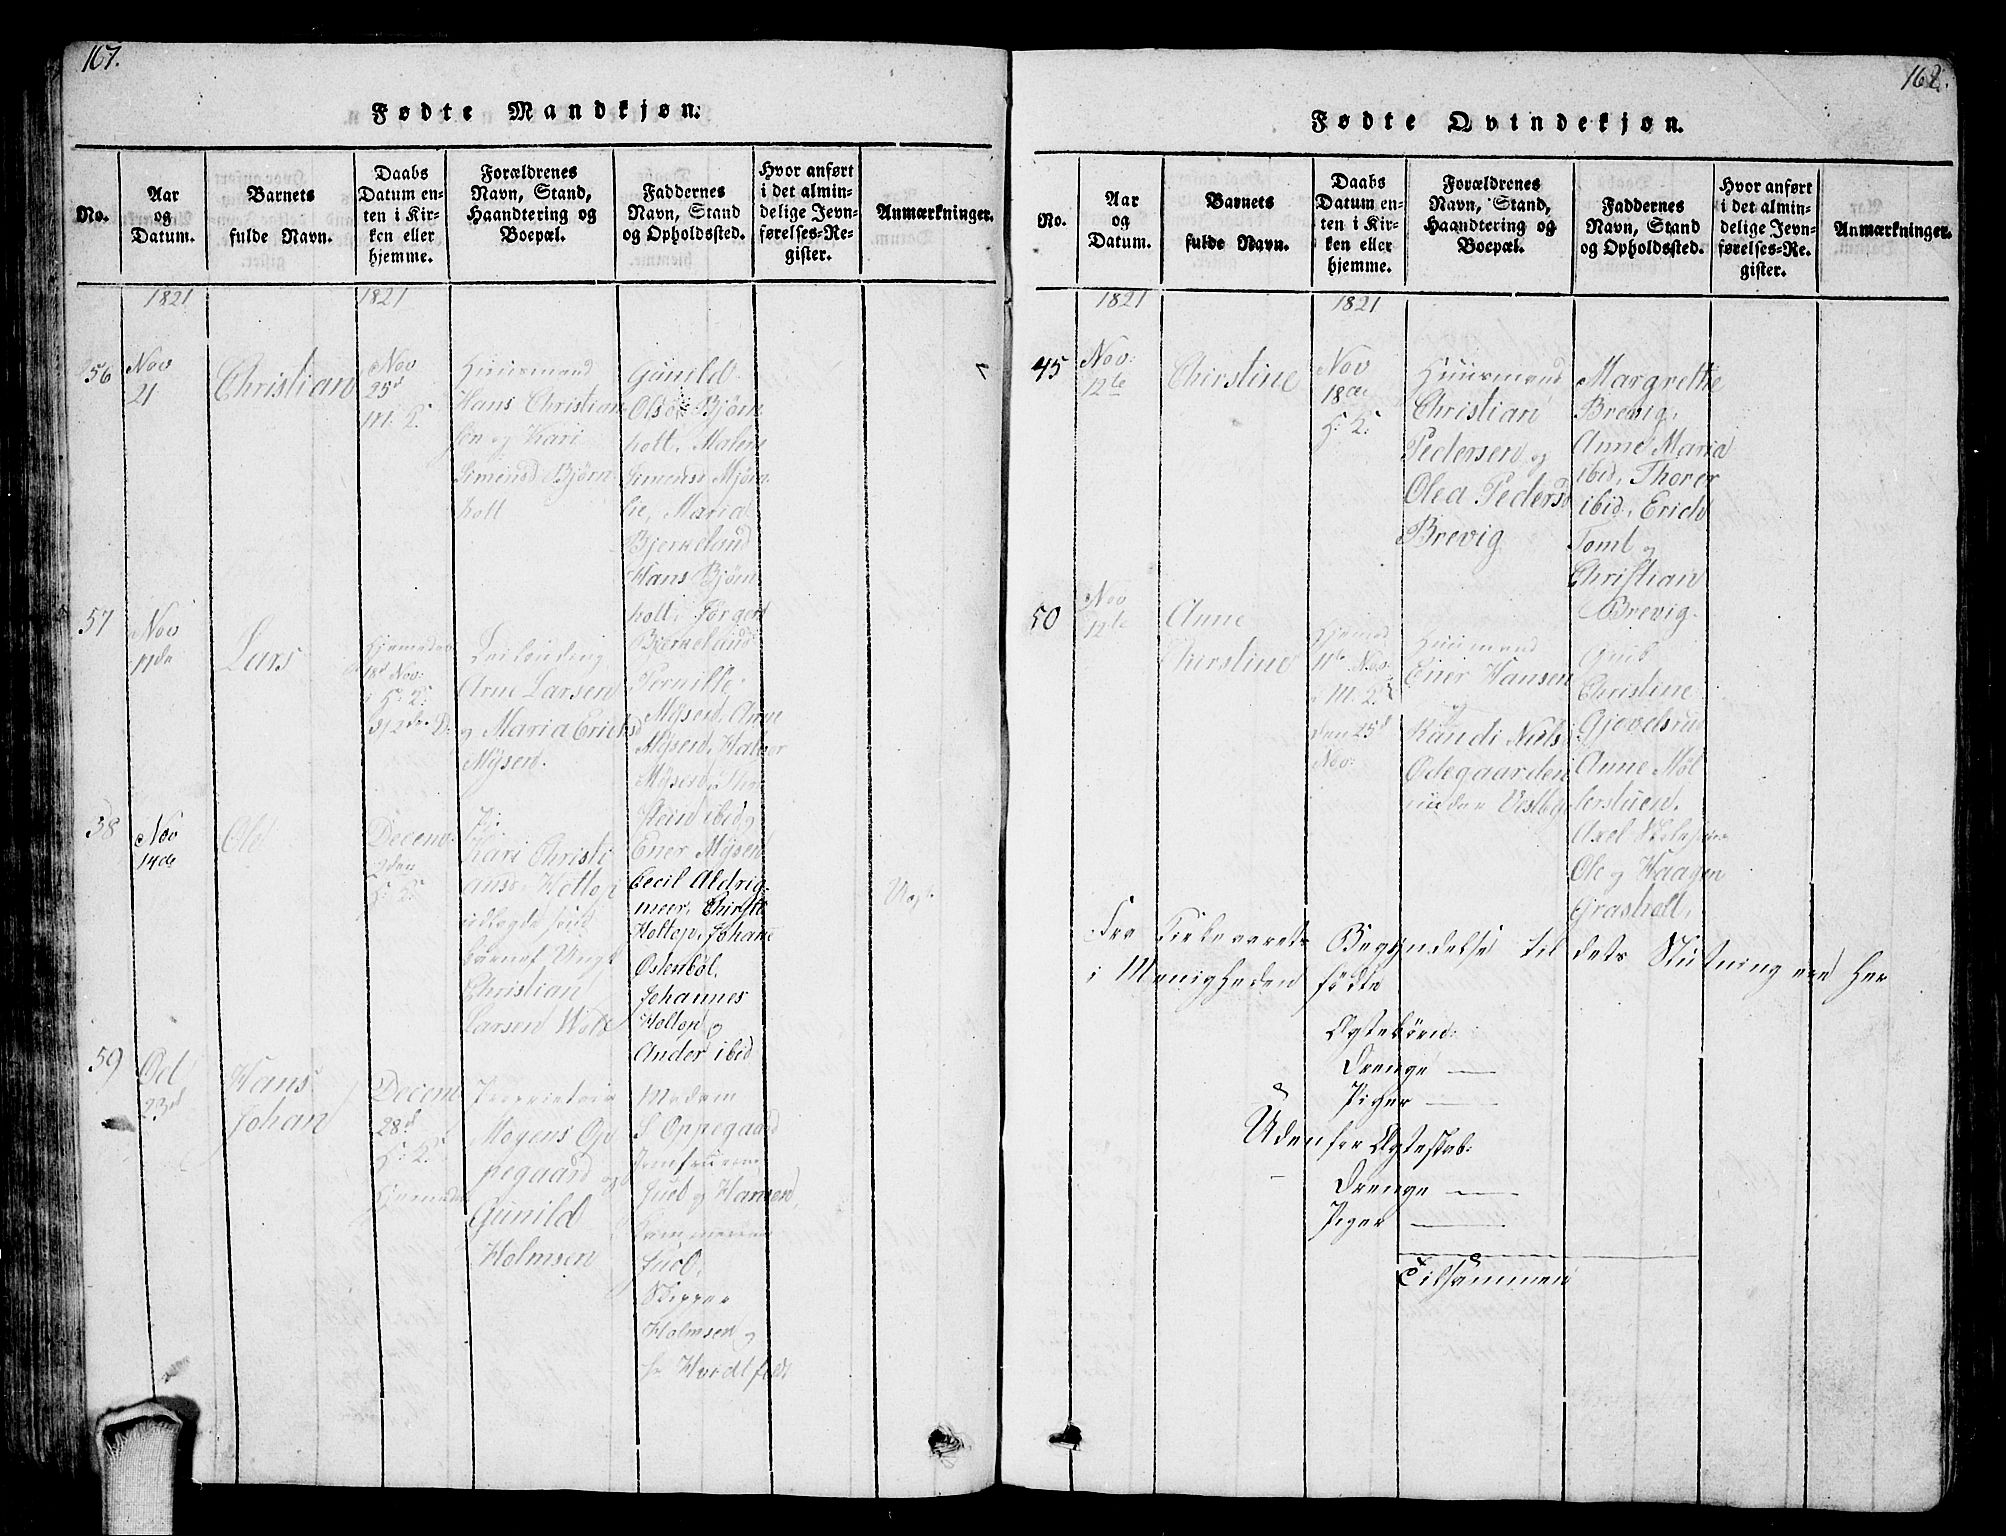 167.
Fødte Mandkjøn.
No.
Aar
og
Datum.
Barnets
fulde Navn.
Daabs
Datum en-
ten i Kir-
ken eller
hjemme.
Forældrenes
Navn, Stand,
Haandtering og
Boepæl.
Faddernes
Navn, Stand
og Opholdssted.
Hvor anført
i det almin-
delige Jevn-
førelses-Re-
gister.
Anmærkninger.
1821
1821
56
Nov
21
Christian
Nov
25d
M: K:
Huusmand
Hans Christian
sen og Kari
Simensd Bjørn
holt
Gunild
Olsd Bjørn
holt, Malene
Simensd Mjørn
lie, Maria
Bjerkeland
Hans Bjørn
holt, Torger
Bjerkeland
57
Nov
11de
Lars
Hjemedøbt
18d Nov:
i H: K:
Leilending
Arne Larsen
og Maria Erichsd
Mysen.
Pernille
Mysen, Anne
Mysen, Halvor
Mysen,
Stein ibid og
Ener Mysen
58
Nov
14de
Ole
Decemb
2den
H: K:
Pi:
Kari Christi
ansd. Holtop
udlagde som
barnef: Ungk
Christian
Larsen Wold
Cecil Aldrig
meer, Chirsti
Holtop, Johane
Ostenbøl,
Johannes
Holtop og
Ander ibid
Uegt.
59
Oct
23d
Hans
Johan
Decem
28d
H: K:
Hjemedøbt
Proprietair
Mogens Op
pegaard og
Gunild
Holmsen
Madam
S Oppegaard
Jomfruerne
Juel og Hansen,
Juel,
Skipper
Holmsen og
Hr Hvidtfeldt
162.
Fødte Qvindekjøn.
No.
Aar
og
Datum.
Barnets
fulde Navn.
Daabs
Datum en-
ten i Kir-
ken eller
hjemme.
Forældrenes
Navn, Stand,
Haandtering og
Boepæl.
Faddernes
Navn, Stand
og Opholdssted.
Hvor anført
i det almin-
delige Jevn-
førelses-Re-
gister.
Anmærkninger.
1821
1821
45
Nov:
12te
Chirstine
Nov
18de
H: K:
Huusmand
Christian
Pedersen og
Olea Pedersd
Brevig
Margrethe
Brevig,
Anne Maria
ibid, Thorer
ibid, Erich
Toml og
Christian
Brevig.
50
Nov
12te
Anne
Chirstine
Hjemed
11te Nov:
i M: K:
den 25d
Nov:
Huusmand
Ener Hansen
og
Randi Nielsd
Ødegaarden
under Vestby
Gunb
Christine
Gjevelsrud
Anne Møl
lerstuen,
Axel
Ole og Haagen
Grasholt,
Fra Kirkeaarets Begyndelse til dets Slutning ere her
i Menigheden fødte
Ægtebørn:
Drenge —
Piger —
Udenfor Ægteskab:
Drenge —
Piger —
Tilsammen